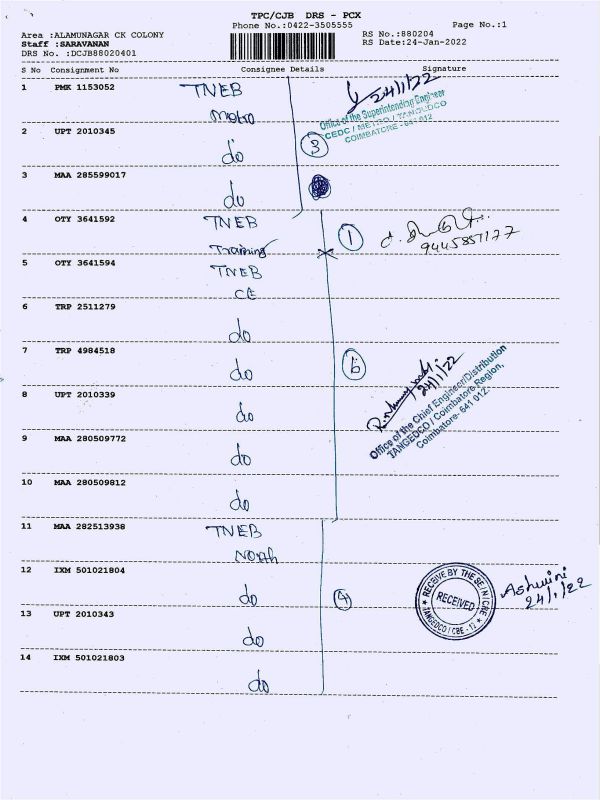 TPC/CJB DRS - PCX
Phone No.:0422-3505555 Page No.:1
Area :ALAMUNAGAR CK COLONY RS No.:880204
Staff :SARAVANAN RS Date:24-Jan-2022
DRS No. :DCJB88020401
S No Consignment No Consignee Details Signature
1 PMK 1153052 TNEB 24/1/22
Metro
Office of the Superintending Engineer
CEDC / METRO / TANGEDCO
COIMBATORE - 641 012
2 UPT 2010345 do 3
3 MAA 285599017 do
4 OTY 3641592 TNEB 1
Training 9445857177
5 OTY 3641594 TNEB
CE
6 TRP 2511279 do
7 TRP 4984518 do 6
24/1/22
Office of the Chief Engineer/Distribution
TANGEDCO / Coimbatore Region,
Coimbatore- 641 012.
8 UPT 2010339 do
9 MAA 280509772 do
10 MAA 280509812 do
11 MAA 282513938 TNEB
North
12 IXM 501021804 do 4
RECEIVE BY THE SE/NCRE
RECEIVED
TANGEDCO / CBE - 12
Ashwini
24/1/22
13 UPT 2010343 do
14 IXM 501021803 do